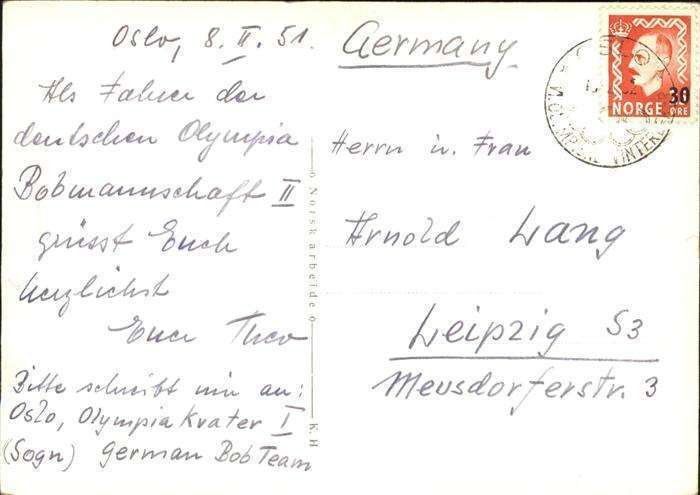 Oslo, 8. II. 51.
Als Fahrer der
deutschen Olympia
Bobmannschaft II
grüsst Euch
herzlichst
Euer Theo
Bitte schreibt mir an:
Oslo, Olympia Kvater I
(Sogn) German Bob Team
o Norsk arbeide o
K.H
Germany
Herrn u. Frau
Arnold Lang
Leipzig S3
Meusdorferstr. 3
30
NORGE ØRE
OSLO
VINTERL